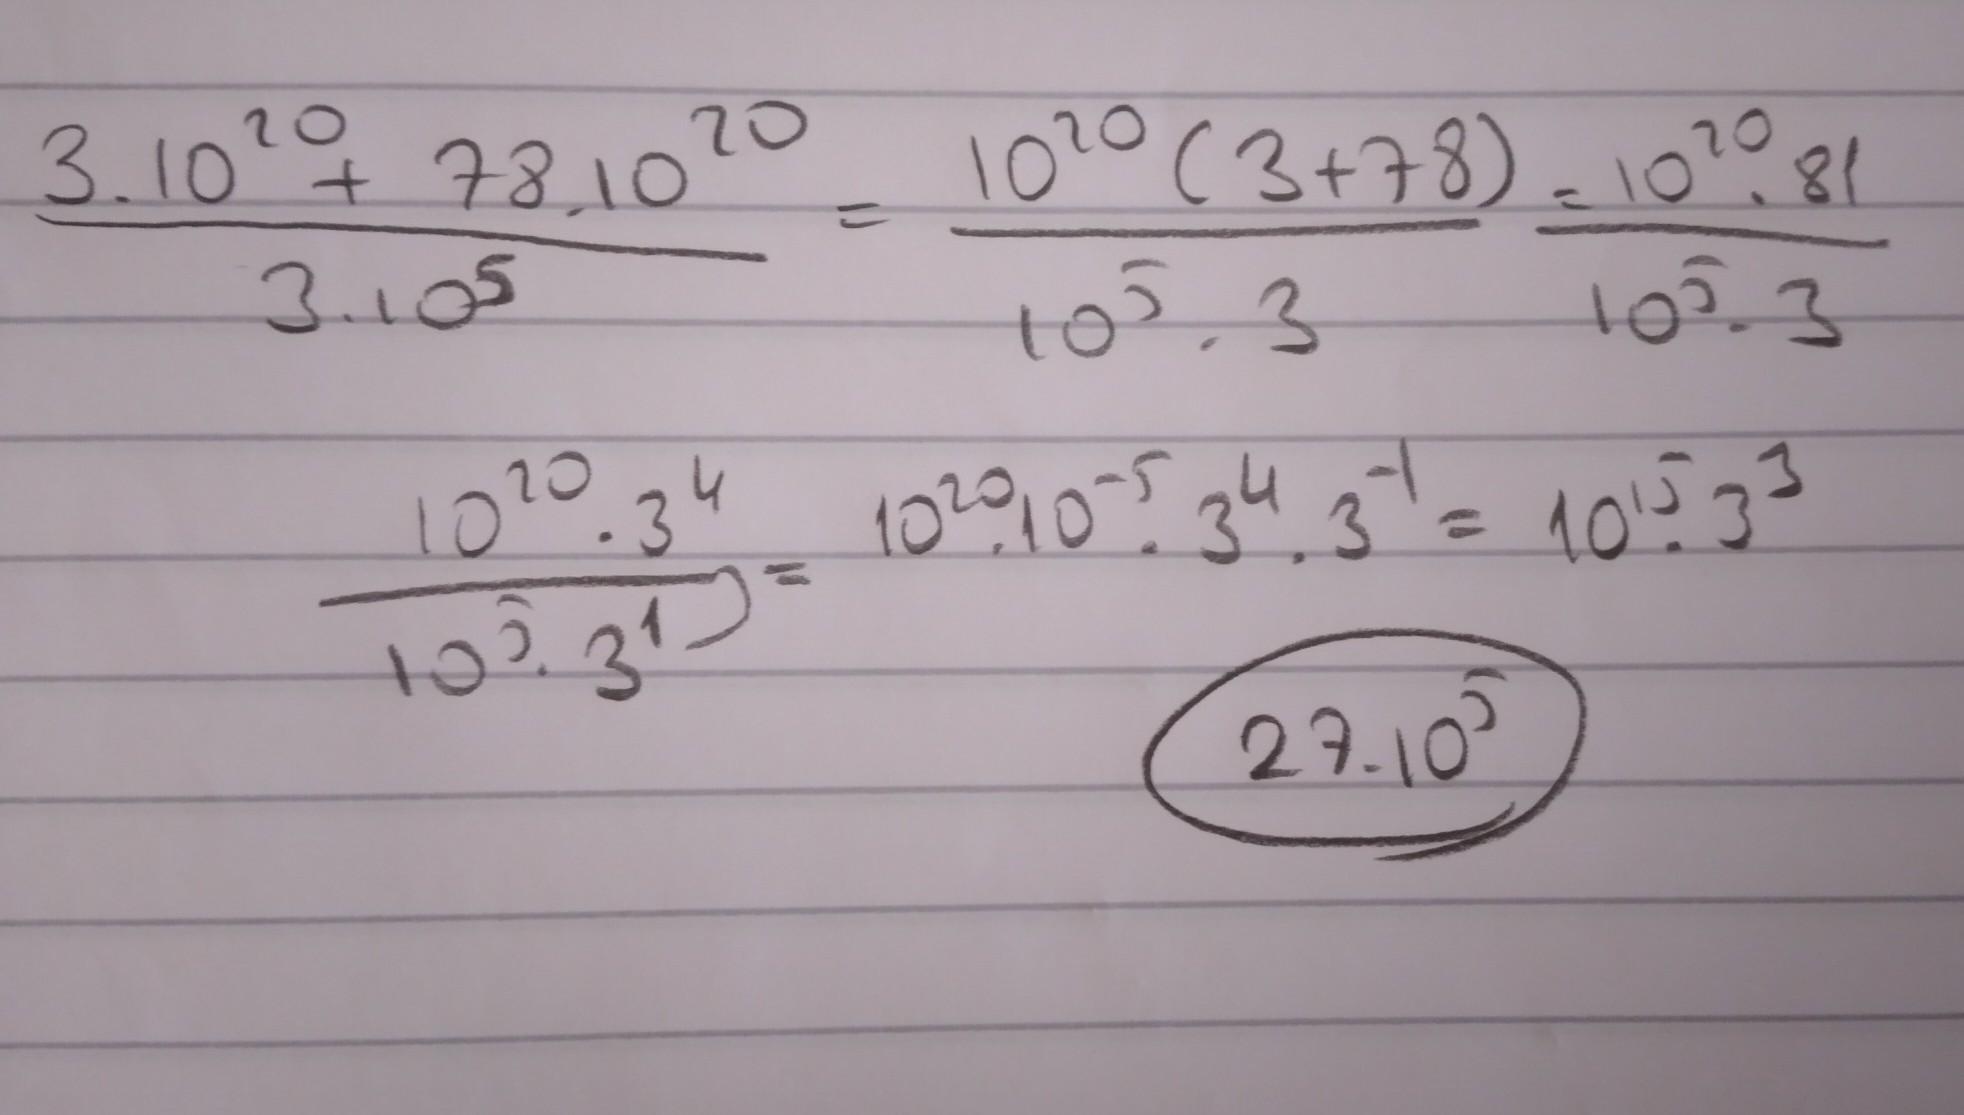 3.10²⁰ + 78.10²⁰ / 3.10⁵ = 10²⁰(3+78) / 10⁵.3 = 10²⁰.81 / 10⁵.3
10²⁰.3⁴ / 10⁵.3¹ = 10²⁰.10⁻⁵.3⁴.3⁻¹ = 10¹⁵.3³
27.10⁵